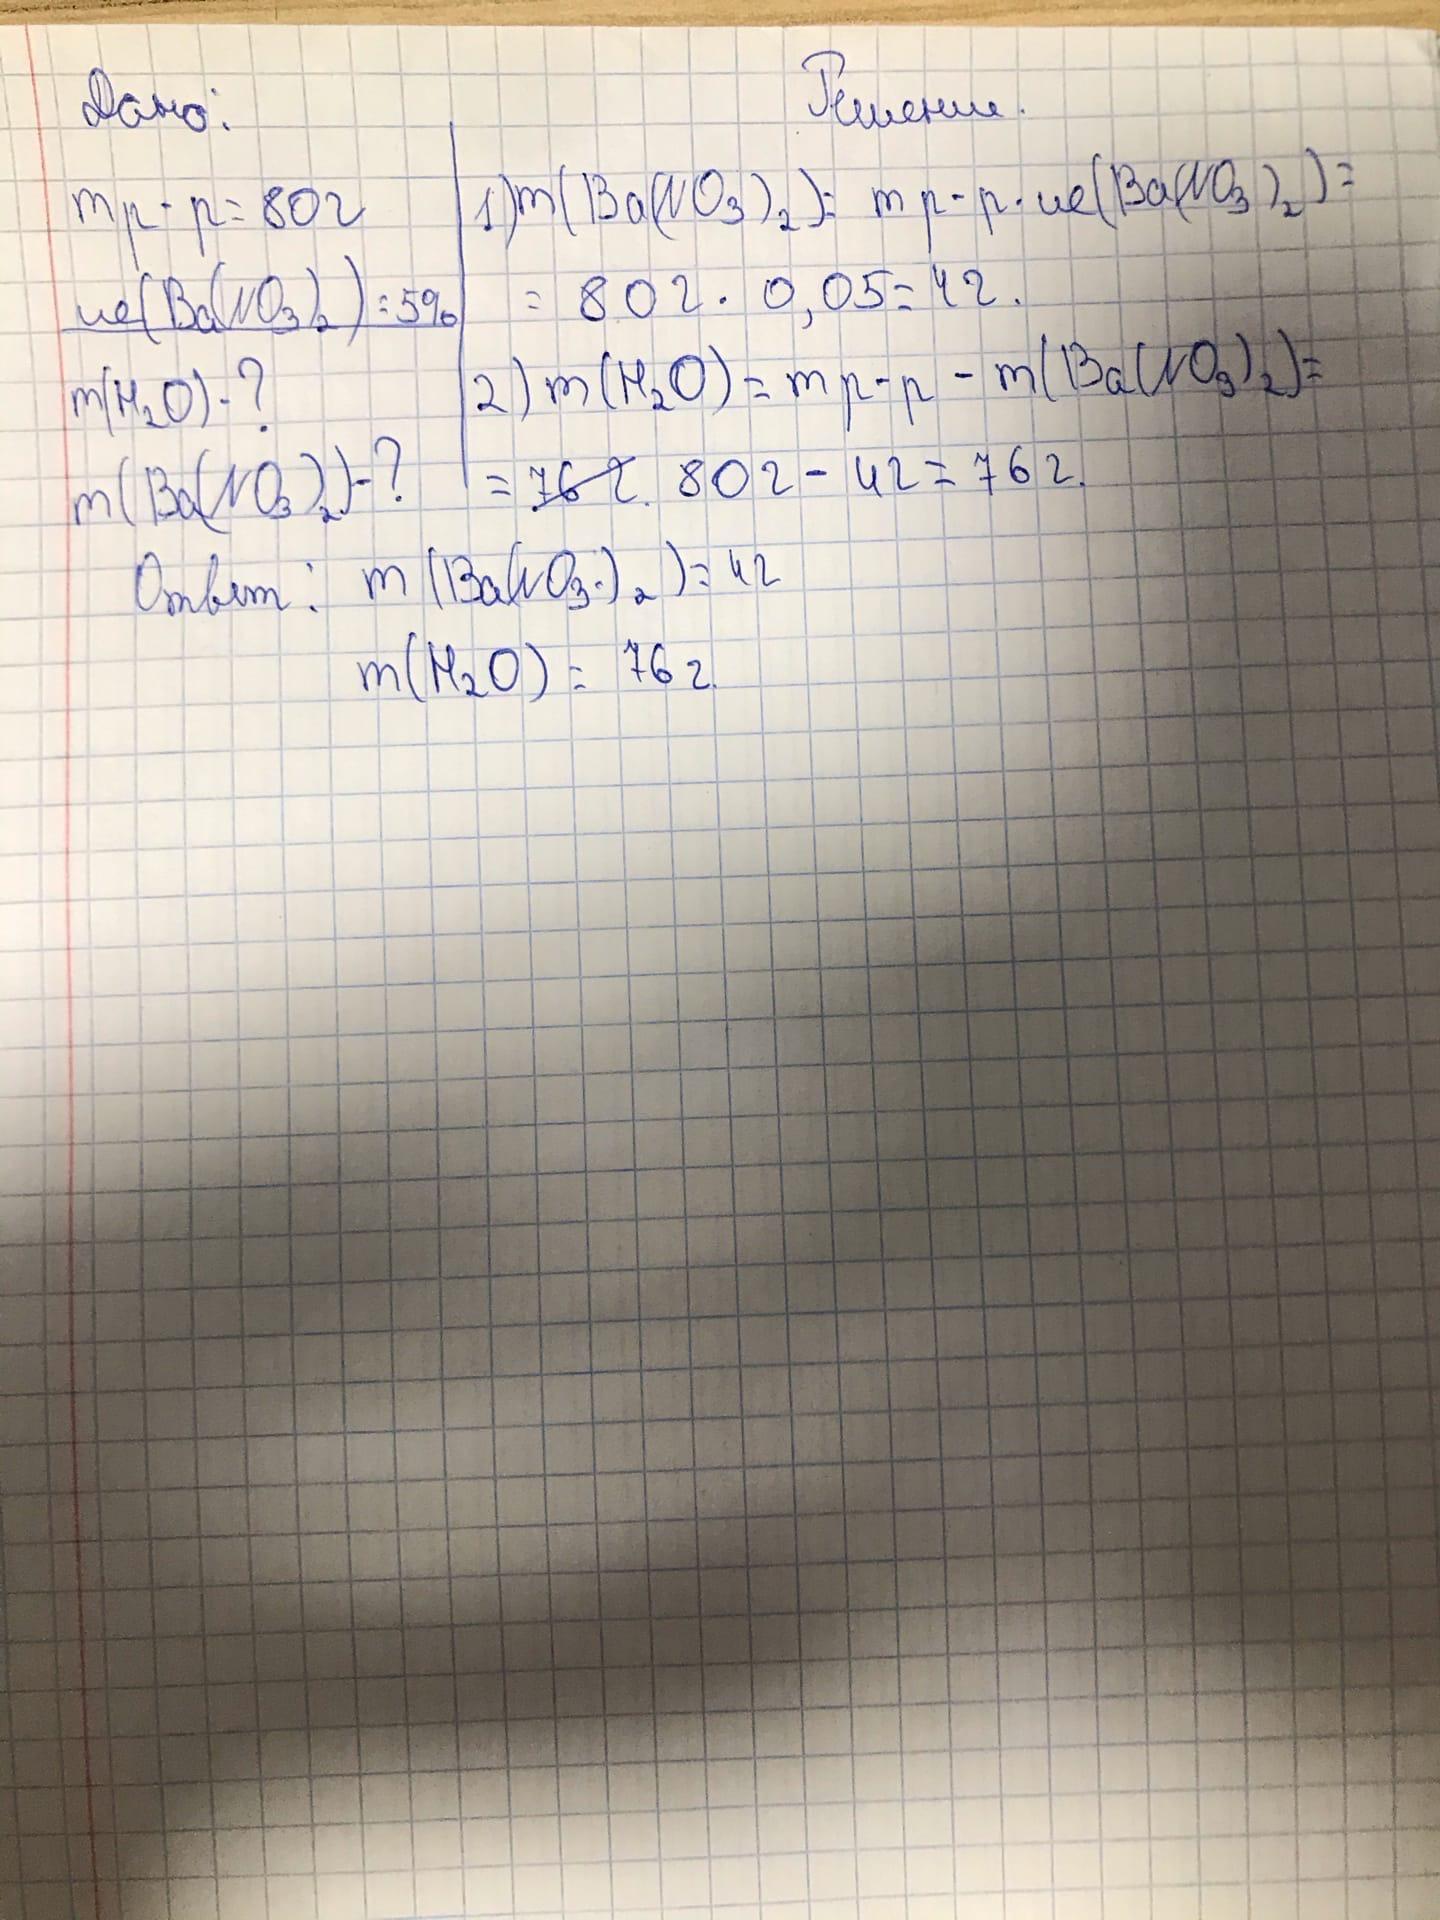 Дано:
Решение.
mр-р=80г
ω(Ba(NO₃)₂)=5%
m(H₂O)-?
m(Ba(NO₃)₂)-?
1) m(Ba(NO₃)₂)= mр-р·ω(Ba(NO₃)₂)=
= 80г · 0,05=4г.
2) m(H₂O)= mр-р - m(Ba(NO₃)₂)=
= 76г. 80г - 4г=76г.
Ответ: m(Ba(NO₃)₂)=4г
m(H₂O)= 76г.